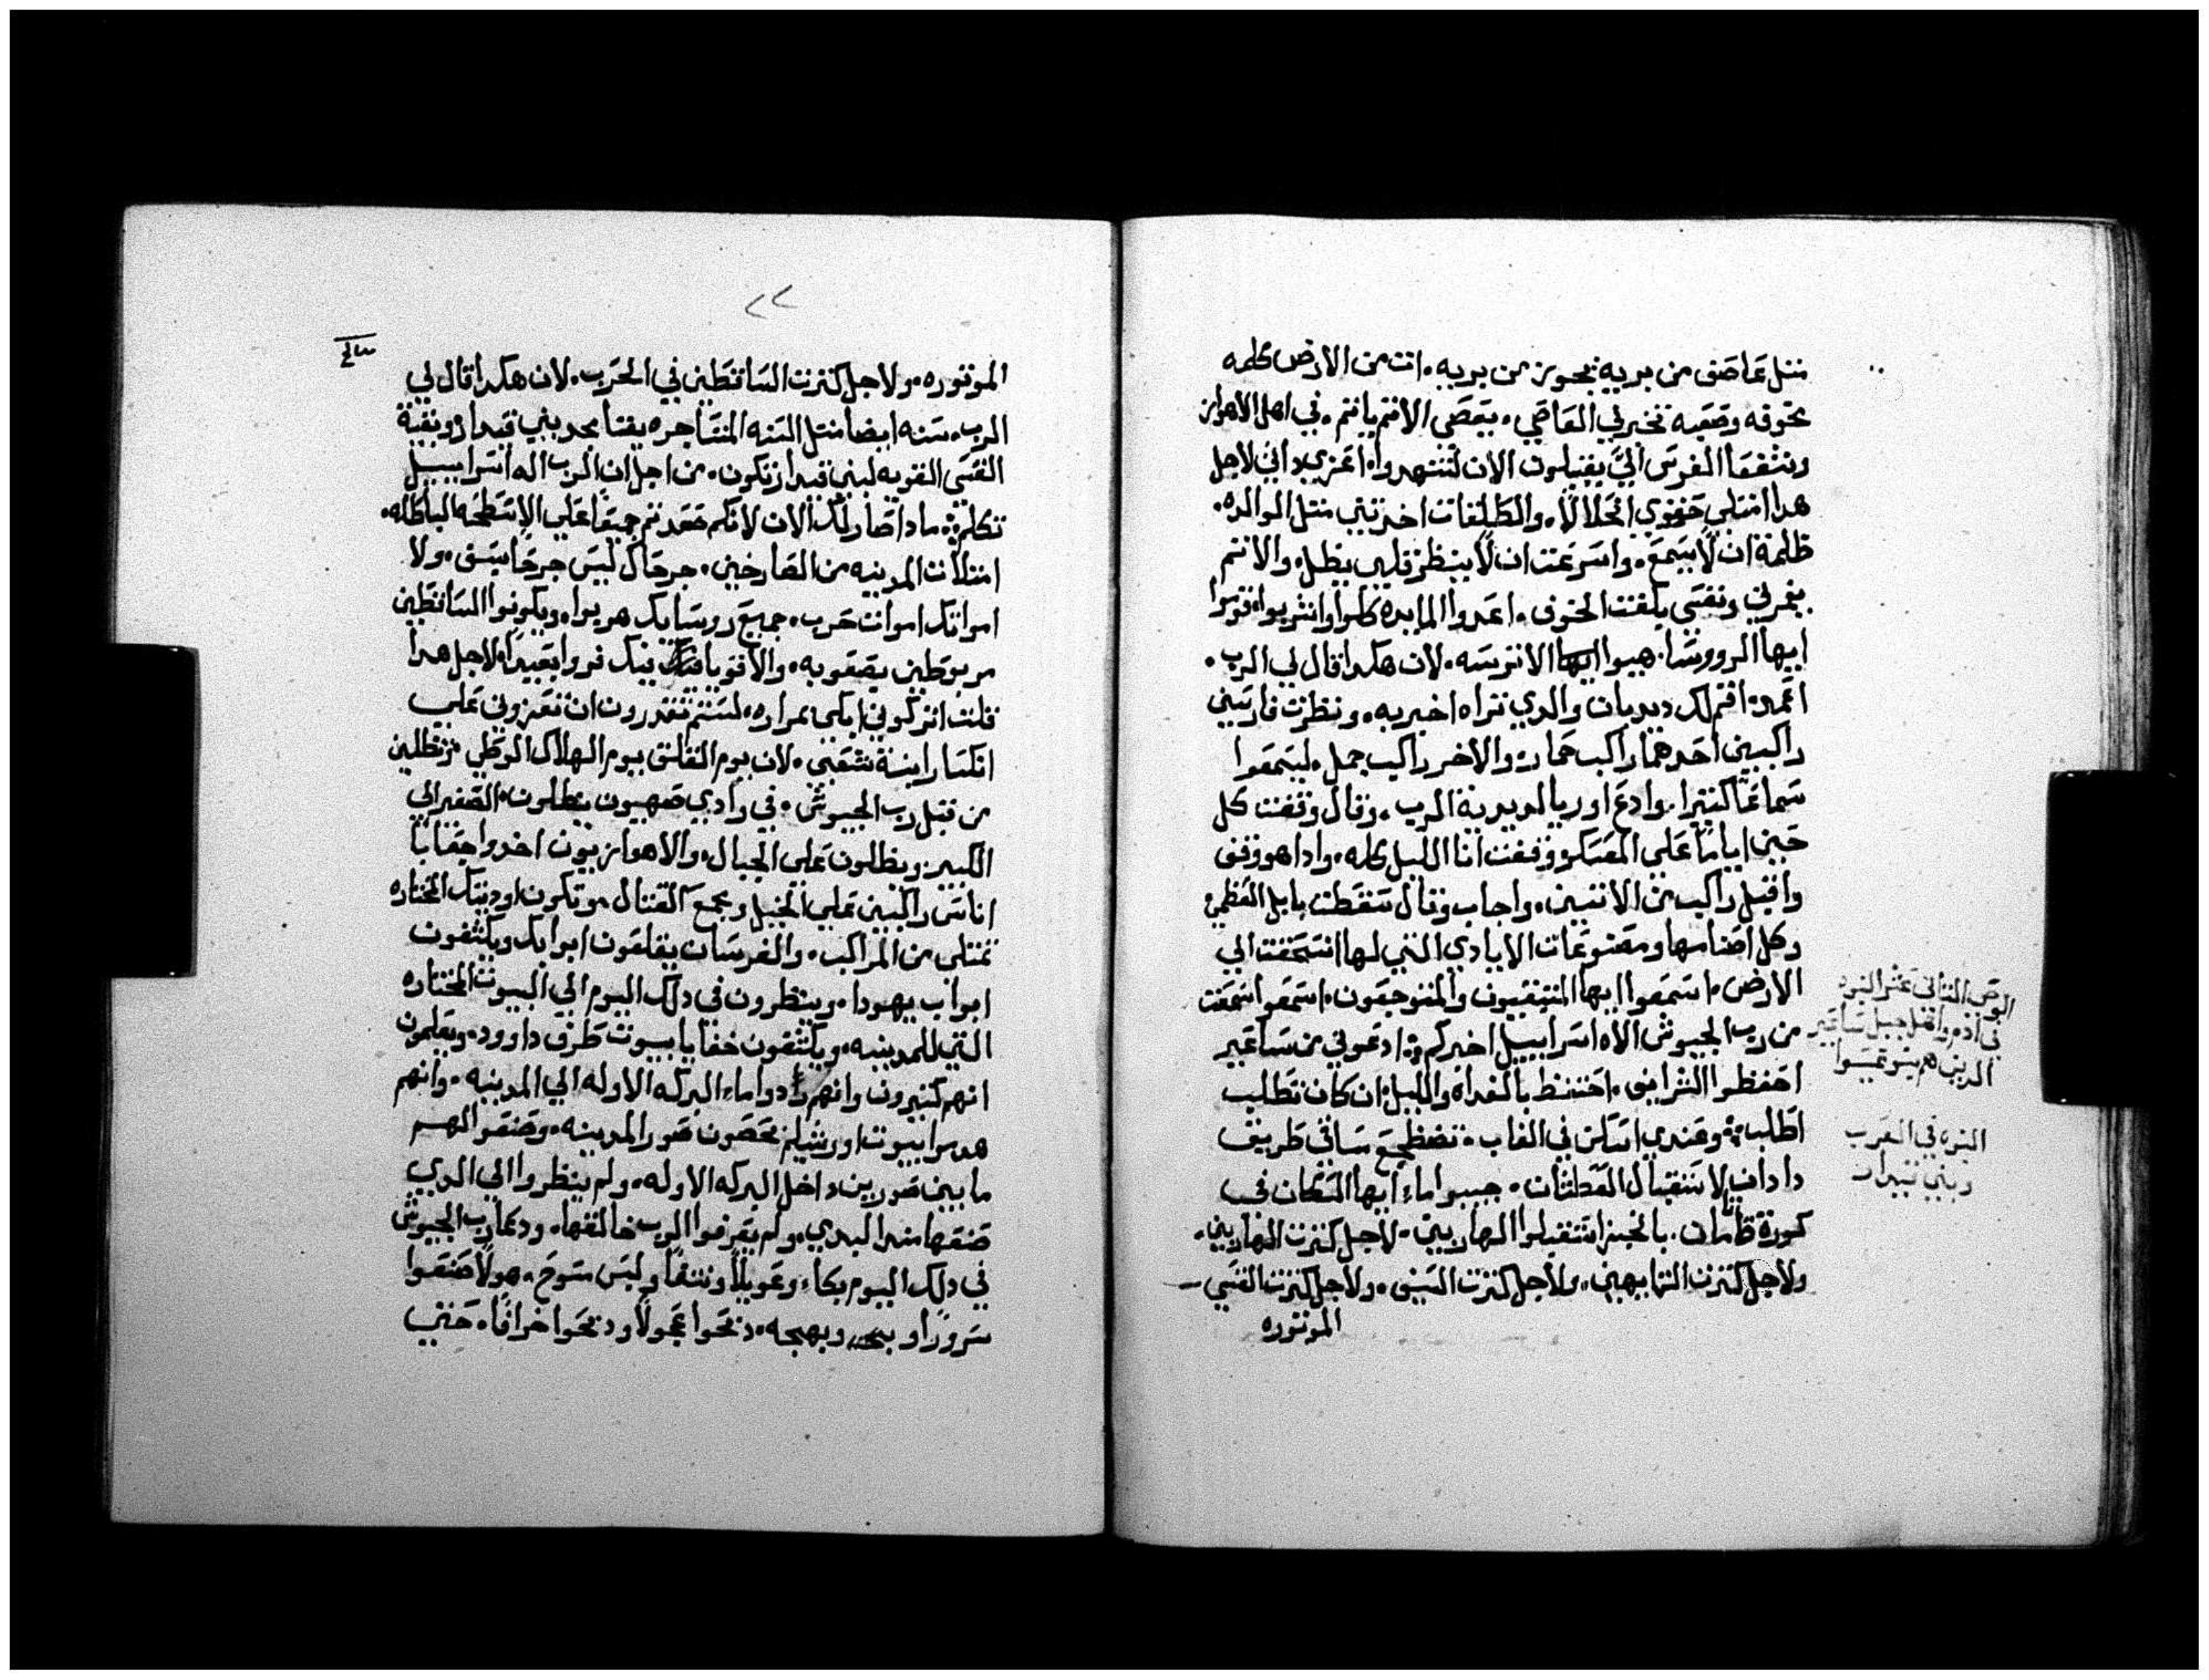 مثل عاصف من بريه يجوز من بريه. اتت من الارض كلمه
مخوفه وصعبه تخبرني العاصي. يعصى الاثم ياثم. في اهل الاهواز
وشفعا الفرس اليَّ يقبلون الان لتنهدوا اعزي دافي لاجل
هدا امتلي حقوي انحلالاً. والطلقات اخدتني مثل الوالده.
ظلمة ان لا يسمع. واسرعت ان لا ينظر قلبي يطل. والاثم
يغمرني ونفسي بلغت الخوف. اعدوا المايده كلوا واشربوا. قوموا
ايها الرووسا. هيوا ايها الاترسه. لان هكدا قال لي الرب.
اعمد. اقم لك ديدبان والدي تراه اخبر به. ونظرت فارسين
راكبين احدهما راكب حمار. والاخر راكب جمل. ليسمعوا
سماعًا كثيرا. وادع اوريا لديدبة الرب. وقال وقفت كل
حين ايامًا علي المعسكر وقفت انا الليل كله. وادا هو وقف
واقبل راكب من الاثنين. واجاب وقال سقطت بابل العظمي
وكل اصنامها ومصنوعات الايادي التي لها انسحقت الي
الارض. اسمعوا ايها المتبقيون والمتوجعون. اسمعوا سمعت
من رب الجيوش الاه اسراييل اخبركم: ادعوني من ساعير
احفظوا الشرايف. احتفظ بالغداه والليل: ان كان تطلب
اطلب: وعندي اسكن في الغاب. تضطجع ساقي طريق
دادان لاستقبال العطشان. جيبوا ماء ايها السكان في
كورة ظامان. بالخبز استقبلوا الهاربين. لاجل كثرت الهاربين.
ولاجل كثرت التايهين. ولاجل كثرت السيف. ولاجل كثرت القسي
الموتوره
الوحي الثاني عشر النبوه
في ادم واهل جبل ساعير
الدين هم بنو عيسوا
النبوه في العرب
وبني قيدار
٢٢
الموتوره. ولاجل كثرت الساقطين في الحرب. لان هكدا قال لي
الرب. سنه ايضًا مثل السنه المتاجره يفنا مجد بني قيدار وبقية
القسى القويه لبني قيدار تكون. من اجل ان الرب اله اسراييل
تكلم: مادا صار لك الان لانكم صعدتم جميعًا علي الاسطحه الباطله.
امتلات المدينه من الصارخين. جرحاك ليس جرحا سيف. ولا
امواتك اموات حرب. جميع روسايك هربوا. ويكونوا الساقطين
مربوطين بصعوبه. والاقويا فيك فروا بعيدًا. لاجل هدا
قلت اتركوني ابكي بمراره. لستم تقدرون ان تعزوني علي
انكسار ابنة شعبي. لان يوم القلق يوم الهلاك الوطي تظلين
من قبل رب الجيوش. في وادي صهيون يطلون. الصغير الي
الكبير ويظلون علي الجبال. والاهوازيون اخدوا جعابا
اناس راكبين علي الخيل وجمع القتال. وتكون اوديتك المختاره
تمتلي من المراكب. والفرسان يقلعون ابوابك ويكشفون
ابواب يهودا. وينظرون في دلك اليوم الي البيوت المختاره
التي للمدينه. ويكشفون خفايا بيوت طرف داوود. ويعلمون
انهم كثيرون وانهم ردوا ماء البركه الاوله الي المدينه. وانهم
هدموا بيوت اورشليم تحصون صور المدينه. وصنعوا لهم
ما بين صورين داخل البركه الاوله. ولم ينظروا الي الدي
صنعها مند البدي. ولم يعرفوا الرب خالقها. ودعا رب الجيوش
في دلك اليوم بكاء وعويلاً ونتفًا ولبس مسوح. هولا صنعوا
سرورًا و وبهجه. دبحوا عجولاً ودبحوا خرافًا. حتي